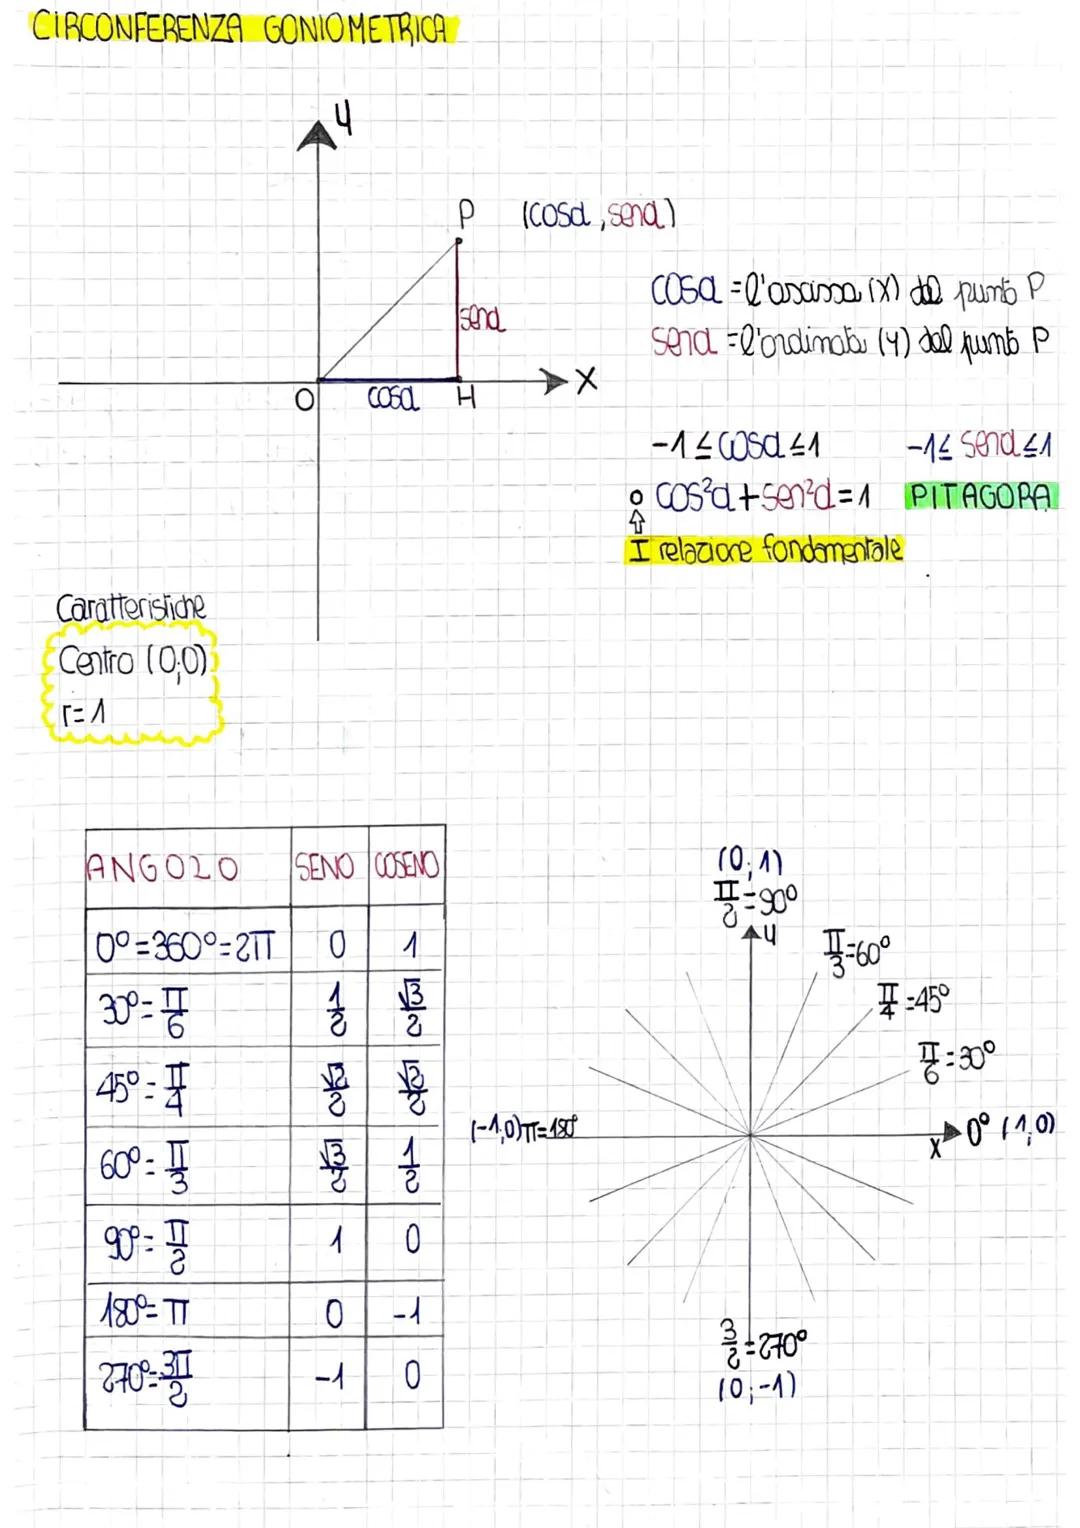 CIRCONFERENZA GONIOMETRICA
y
P (cosα, senα)
cosα = l'ascissa (x) del punto P
senα
senα = l'ordinata (y) del punto P
O cosα H X
-1 ≤ cosα ≤ 1 -1 ≤ senα ≤ 1
cos²α + sen²α = 1 PITAGORA
I relazione fondamentale
Caratteristiche
Centro (0;0)
r = 1
ANGOLO SENO COSENO
0° = 360° = 2π 0 1
30° = π/6 1/2 √3/2
45° = π/4 √2/2 √2/2
60° = π/3 √3/2 1/2
90° = π/2 1 0
180° = π 0 -1
270° = 3π/2 -1 0
(0;1)
π/2 = 90°
y
π/3 = 60°
π/4 = 45°
π/6 = 30°
(-1,0) π = 180° x 0° (1,0)
3/2 = 270°
(0;-1)